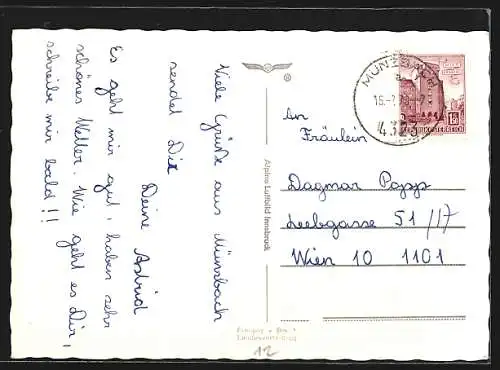 Viele Grüße aus Münzbach
sendet Dir
Deine Astrid
Es geht mir gut, haben sehr
schönes Wetter. Wie geht es Dir,
schreibe mir bald!!
Alpine Luftbild Innsbruck
MÜNZBACH
4323
REPUBLIK ÖSTERREICH
An
Fräulein
Dagmar Popp
Leebgasse 51/17
Wien 10 1101
12